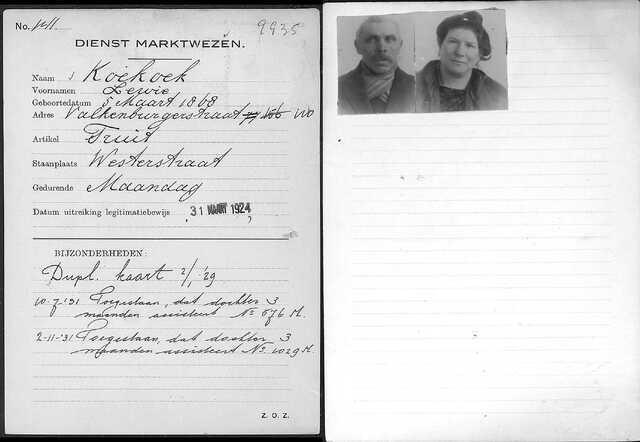 No. 9935
DIENST MARKTWEZEN.
Naam Koekoek
Voornamen Lewie
Geboortedatum 5 Maart 1868
Adres Valkenburgerstraat 166
Artikel Fruit
Staanplaats Westerstraat
Gedurende Maandag
Datum uitreiking legitimatiebewijs 31 MAART 1924
BIJZONDERHEDEN:
Dupl. kaart 2/1 '29
10-7-'31 Toegestaan, dat dochter 3
maanden assisteert No 676 M.
2-11-'31 Toegestaan, dat dochter 3
maanden assisteert No 1029 M.
Z. O. Z.